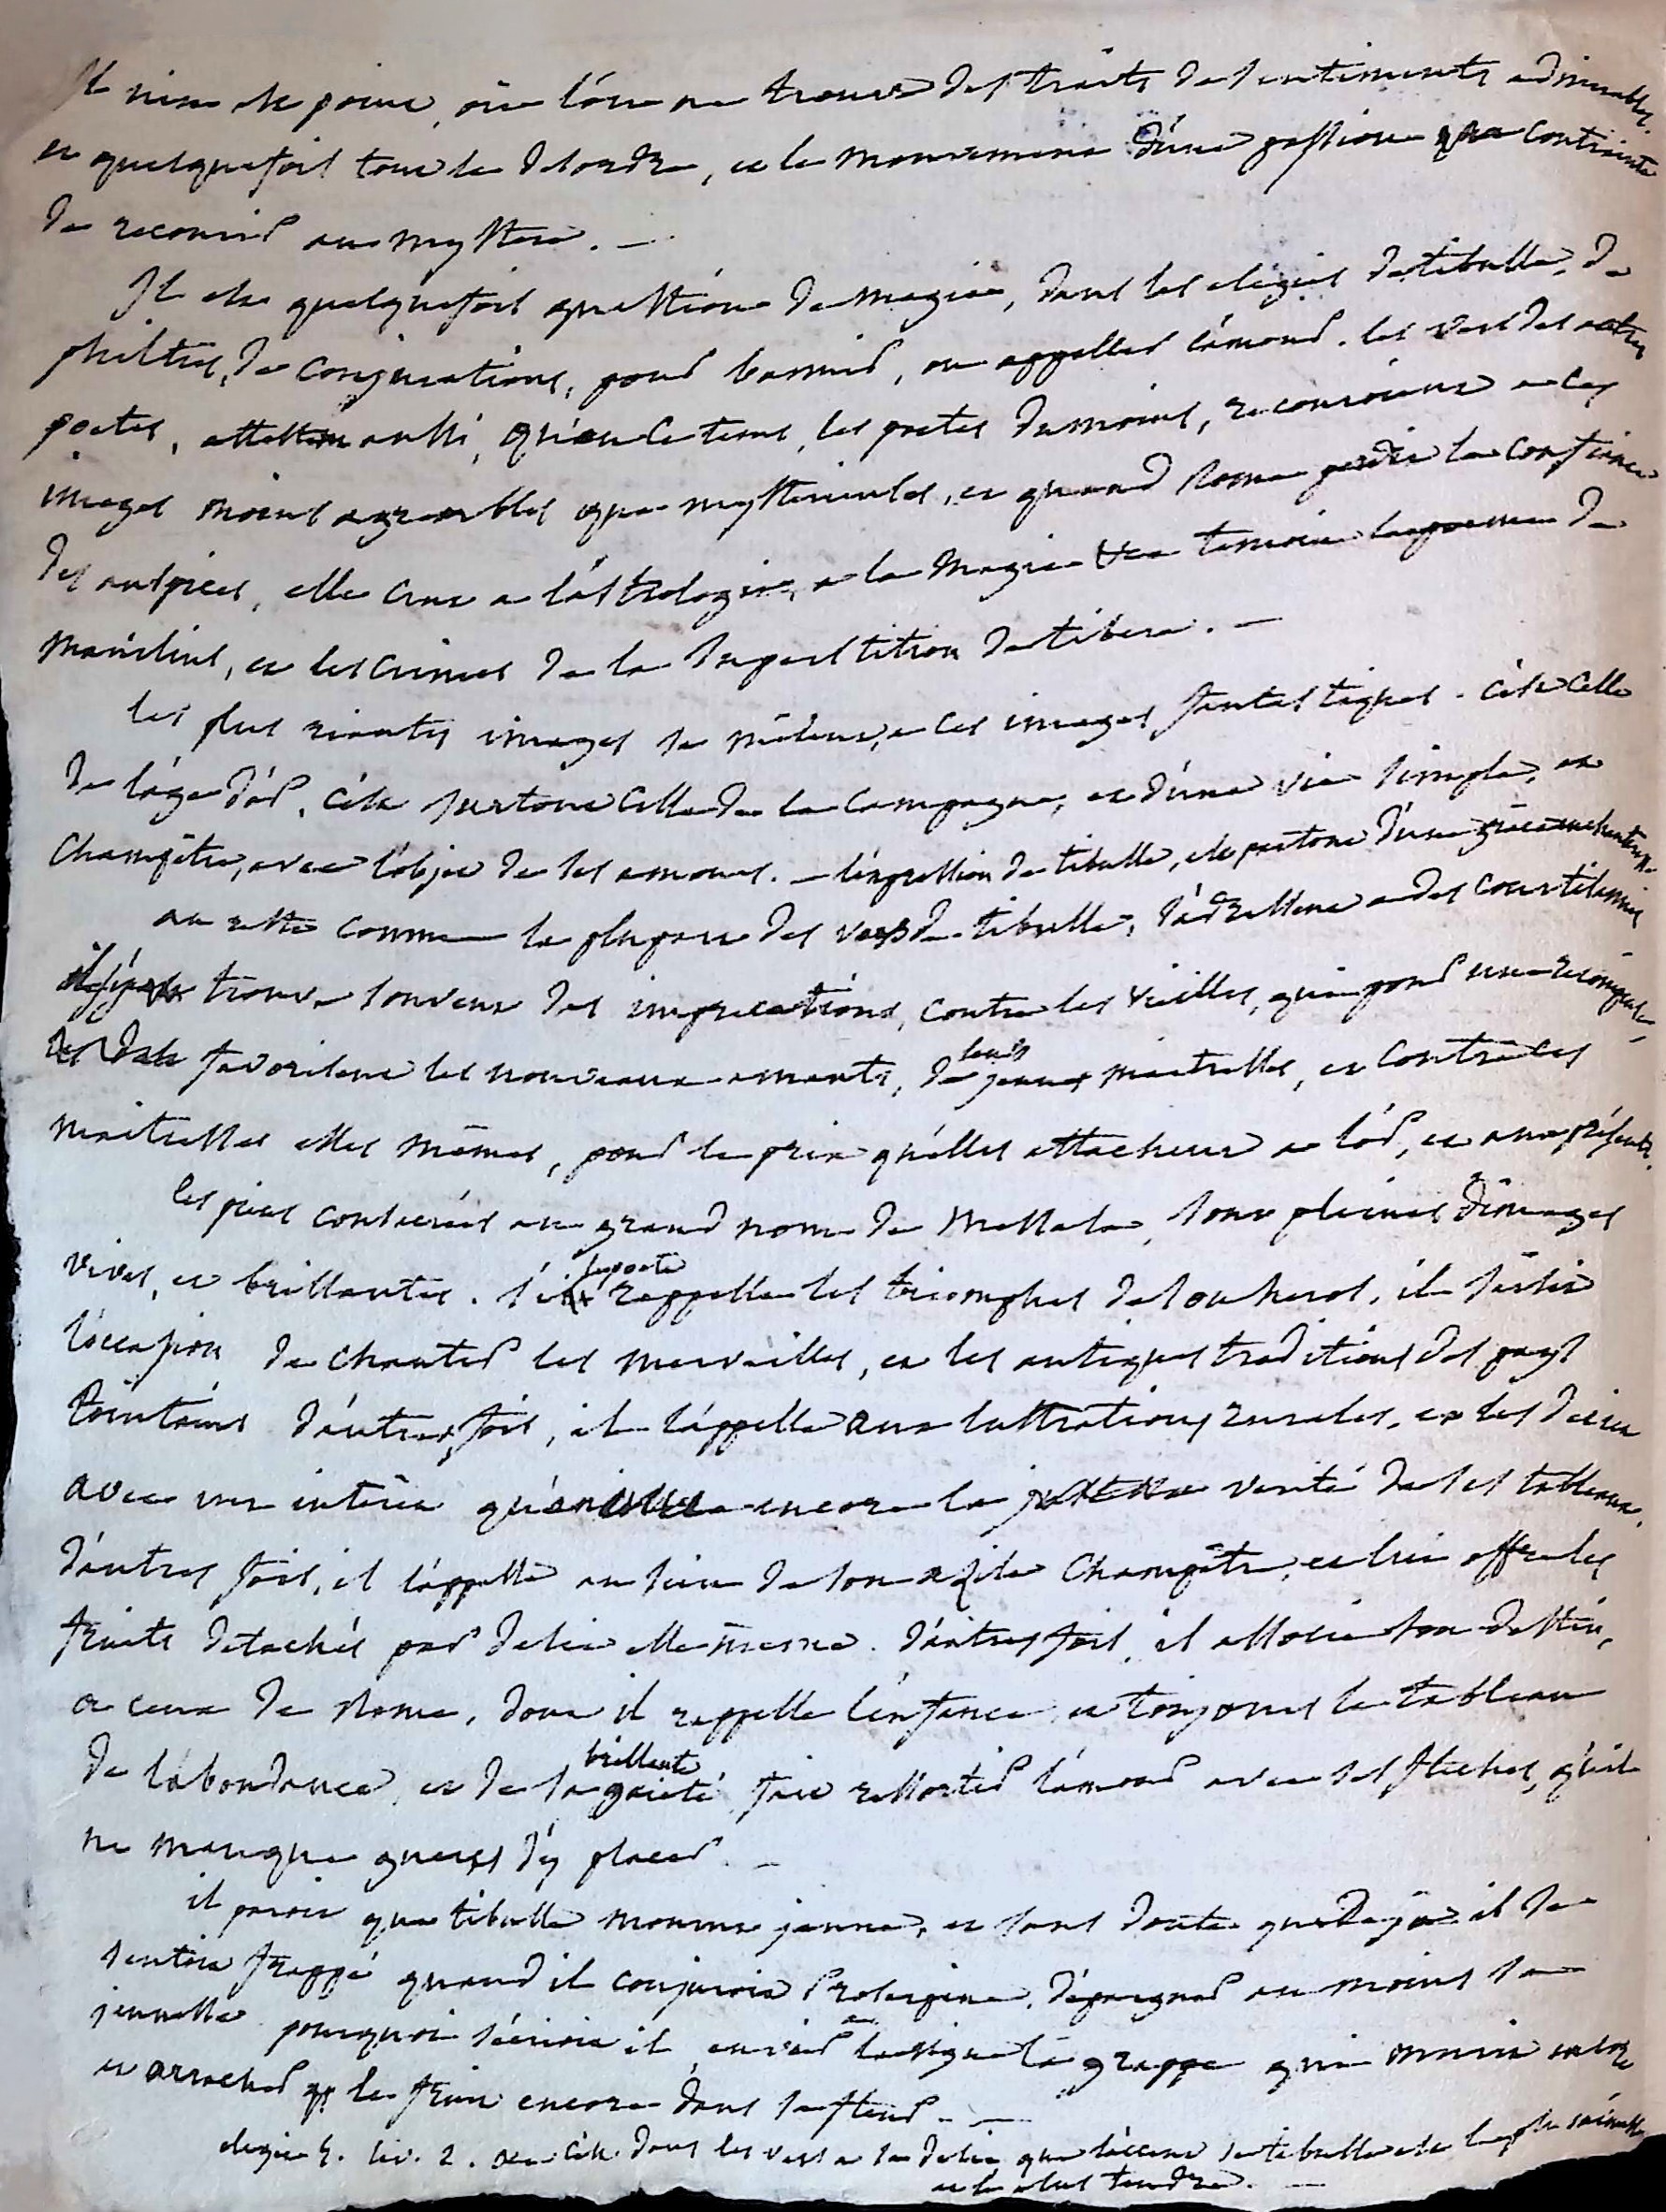 Il n'en est point, où l'on ne trouve des traits de sentiments admirables.
et quelquefois tout le desordre, et le mouvement d'une passion contrainte
de recourir au mystere. —
Il est quelquefois question de magie, dans les elegies de tibulle, de
philtres, de conjurations, pour bannir, ou appeller l'amour. les vers des autres
poetes, attestent aussi, qu'en ce tems, les poetes du moins, recouroient a ces
images moins agreables que mysterieuses, et quand Rome perdit la confiance
des auspices, elle crut a l'astrologie, a la magie temoin le poeme de
manilius, et les crimes de la superstition de tibere. —
les plus riantes images se mêlent, a ces images fantastiques. c'est celle
de l'age d'or, c'est surtout celle de la campagne, et d'une vie simple, et
champêtre, avec l'objet de ses amours. — l'expression de tibulle, est partout d'une grace enchanteresse
au reste comme la plupart des vers de tibulle, s'adressent a des courtisannes
il s'y trouve souvent des imprecations, contre les vieilles, qui pour une recompense
favorisent les nouveaux amants, de leurs jeunes maitresses, et contre ces
maitresses elles mêmes, pour le prix qu'elles attachent a l'or, et aux présents.
les pieces consacrées au grand nom de Messala, sont pleines d'images
vives, et brillantes. si le poete rappelle les triomphes de son heros, il saisit
l'occasion de chanter les merveilles, et les antiques traditions des pays
lointains d'autres fois, il l'appelle aux lustrations rurales, et les decrit
avec un interêt encore la verité de ses tableaux.
d'autres fois, il l'appelle au sein de son azile champêtre, et lui offre les
fruits detachés par delie elle même. d'autres fois, il associe son destin,
a ceux de Rome, dont il rappelle l'enfance et toujours le tableau
de l'abondance, et de sa brillante gaieté fait ressortir l'amour avec ses fleches, qu'il
ne manque gueres d'y placer. —
il paroit que tibulle mourut jeune, et sans doute que deja il se
sentoit frappé quand il conjuroit Proserpine, d'epargner au moins sa
jeunesse pourquoi s'ecrioit il, ravir a la vigne la grappe qui murit encore
et arracher le fruit encore dans sa fleur. —
elegie 5. liv. 2. c'est dans les vers a sa delie que l'accent de tibulle est le plus
et le plus tendre. —